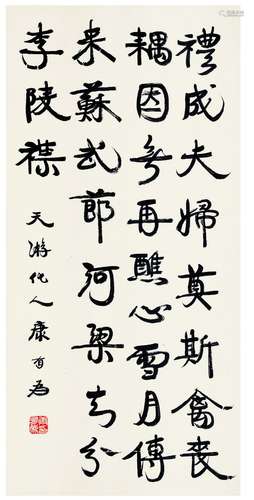 禮成夫婦莫斯禽喪
耦因無再醮心雪月傳
來蘇武節河梁去分
李陵襟
天游化人康有為